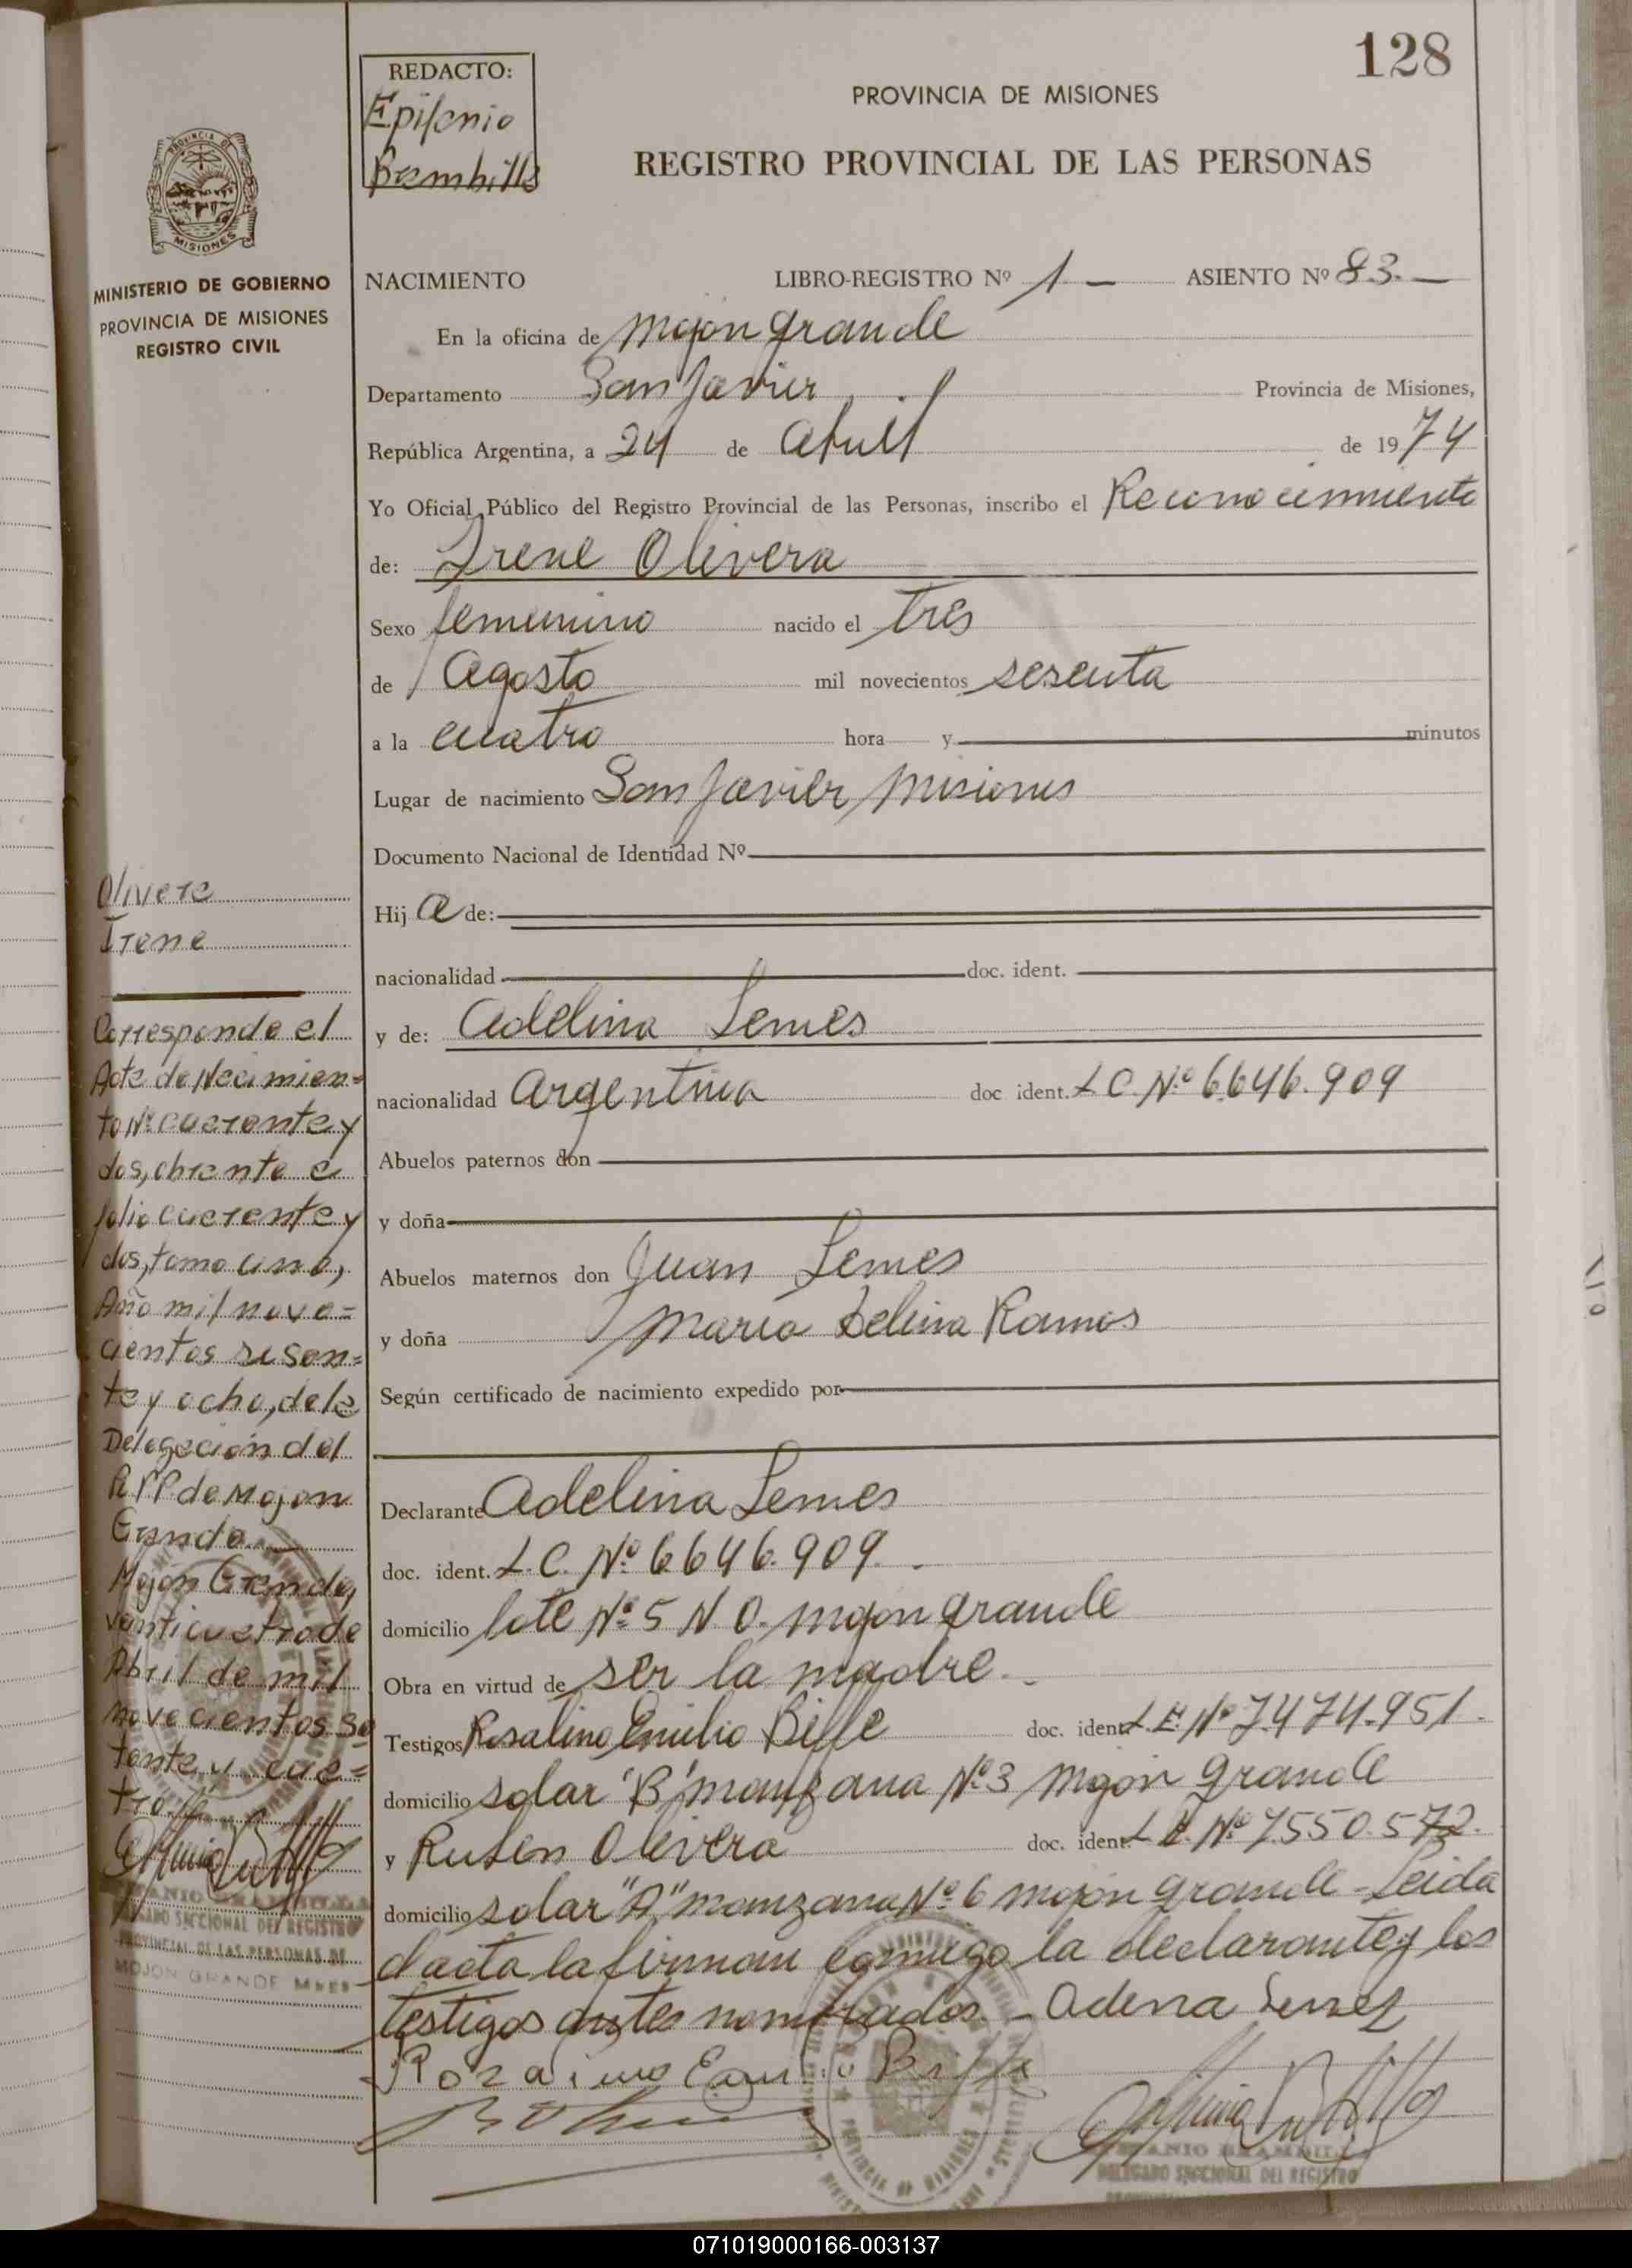 128
REDACTO:
Epifanio
Brambilla
PROVINCIA DE MISIONES
REGISTRO PROVINCIAL DE LAS PERSONAS
PROVINCIA DE
MISIONES
MINISTERIO DE GOBIERNO
PROVINCIA DE MISIONES
REGISTRO CIVIL
NACIMIENTO LIBRO-REGISTRO Nº 1 — ASIENTO Nº 83.—
En la oficina de Mojon grande
Departamento San Javier Provincia de Misiones,
República Argentina, a 24 de Abril de 1974
Yo Oficial Público del Registro Provincial de las Personas, inscribo el Reconocimiento
de: Irene Olivera
Sexo femenino nacido el tres
de Agosto mil novecientos sesenta
a la cuatro hora y minutos
Lugar de nacimiento San Javier Misiones
Documento Nacional de Identidad Nº
Hij a de:
nacionalidad doc. ident.
y de: Adelina Lemes
nacionalidad Argentina doc ident. L C. Nº 6.646.909
Abuelos paternos don
y doña
Abuelos maternos don Juan Lemes
y doña Maria Delina Ramos
Según certificado de nacimiento expedido por
Declarante Adelina Lemes
doc. ident. L.C. Nº 6646.909.
domicilio lote Nº 5 N. O. Mojon grande
Obra en virtud de ser la madre.
Testigos Rosalino Emilio Biffe doc. ident. L.E. Nº 7.474.951.
domicilio solar "B" manzana Nº 3 Mojón grande
y Ruben Olivera doc. ident. L.E. Nº 7.550.572.
domicilio solar "A" manzana Nº 6 mojón grande - Leida
el acta la firman conmigo la declarante y los
testigos antes nombrados. - Adelina Lemes
Olivera
Irene
Corresponde el
Acta de Nacimien=
to Nº cuarenta y
dos, obrante a
folio cuarenta y
dos, tomo uno,
Año mil nove=
cientos sesen=
ta y ocho, de la
Delegación del
RPP de Mojon
Grande.
Mojón Grande,
veinticuatro de
Abril de mil
novecientos se
tenta y cua=
tro.
DELEGADO SECCIONAL DEL REGISTRO
PROVINCIAL DE LAS PERSONAS DE
MOJON GRANDE Mnes
DELEGADO SECCIONAL DEL REGISTRO
071019000166-003137